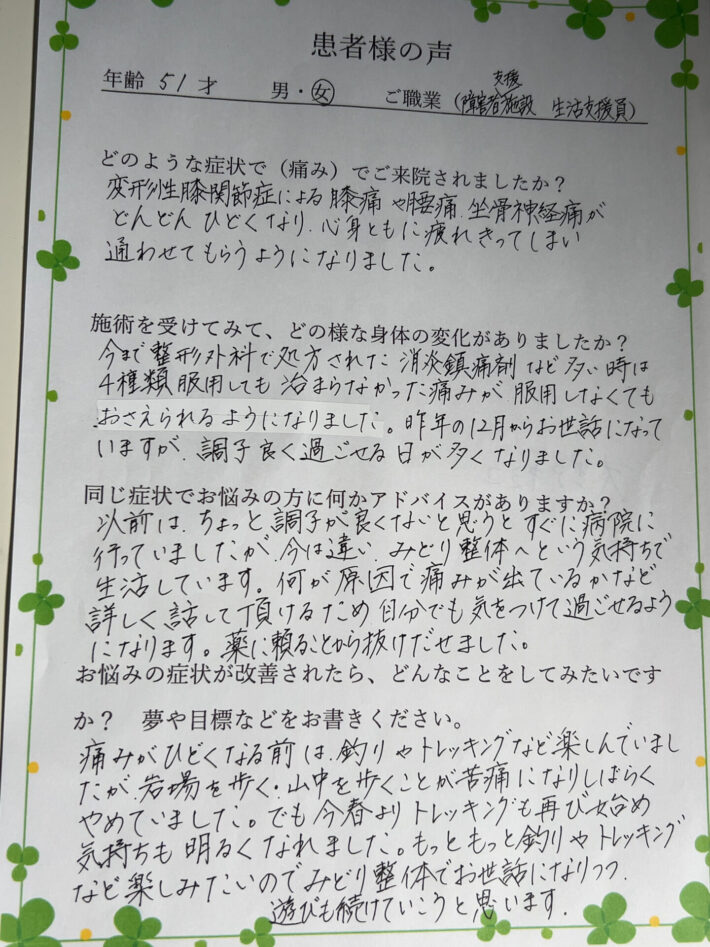 患者様の声
年齢 51 才 男・女 ご職業 (障害者支援施設 生活支援員)
どのような症状で（痛み）でご来院されましたか？
変形性膝関節症による膝痛や腰痛、坐骨神経痛が
どんどんひどくなり、心身ともに疲れきってしまい
通わせてもらうようになりました。
施術を受けてみて、どの様な身体の変化がありましたか？
今まで整形外科で処方された消炎鎮痛剤など多い時は
4種類服用しても治まらなかった痛みが服用しなくても
おさえられるようになりました。昨年の12月からお世話になって
いますが、調子良く過ごせる日が多くなりました。
同じ症状でお悩みの方に何かアドバイスがありますか？
以前は、ちょっと調子が良くないと思うとすぐに病院に
行っていましたが、今は違い、みどり整体へという気持ちで
生活しています。何が原因で痛みが出ているかなど
詳しく話して頂けるため自分でも気をつけて過ごせるよう
になります。薬に頼ることから抜けだせました。
お悩みの症状が改善されたら、どんなことをしてみたいです
か？ 夢や目標などをお書きください。
痛みがひどくなる前は、釣りやトレッキングなど楽しんでいまし
たが、岩場を歩く・山中を歩くことが苦痛になりしばらく
やめていました。でも今春よりトレッキングも再び始め
気持ちも明るくなれました。もっともっと釣りやトレッキング
など楽しみたいのでみどり整体でお世話になりつつ、
遊びも続けていこうと思います。